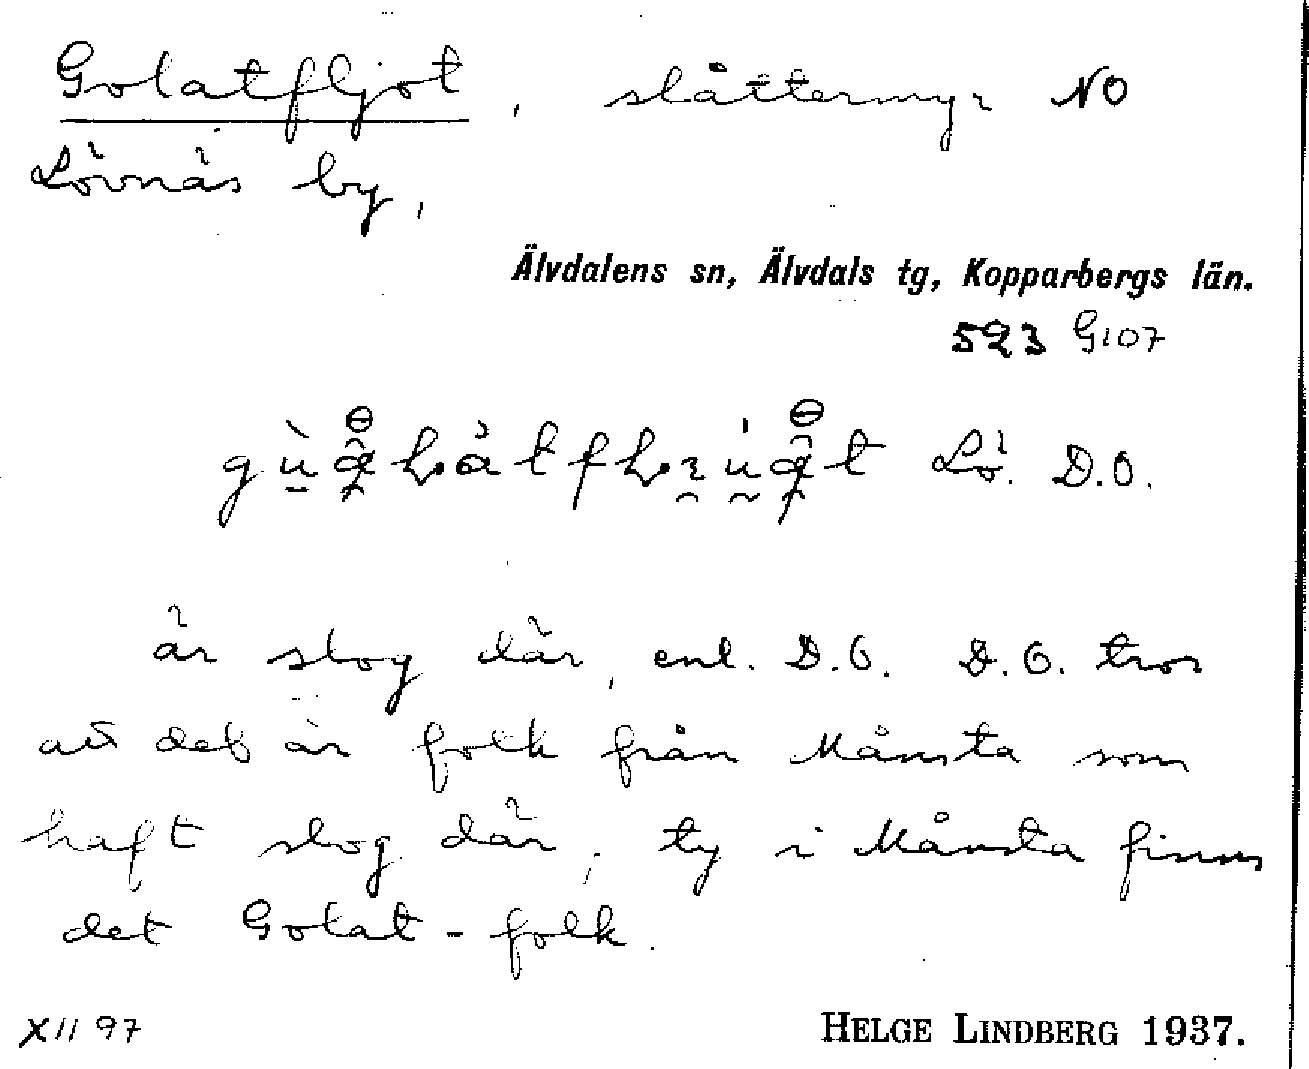 Golatfljot, slåttermyr NO
Lövnäs by,
Älvdalens sn, Älvdals tg, Kopparbergs län.
523 G107
Lö. D.O.
är slog där, enl. D.O. D.O. tror
att det är folk från Månsta som
haft slog där, ty i Månsta finns
det Golat-folk.
XII 97
HELGE LINDBERG 1937.